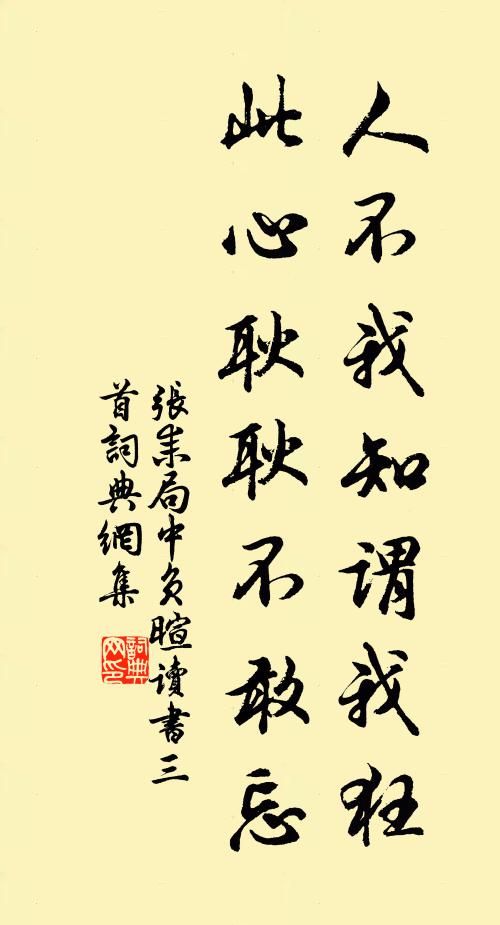 人不我知謂我狂
此心耿耿不敢忘
張耒局中負暄讀書三
首詞典網集
詞典
網印